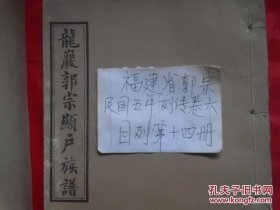 龍巖郭宗顯户族譜
福建省郭宗
民国五年列传卷六
目列第十四册